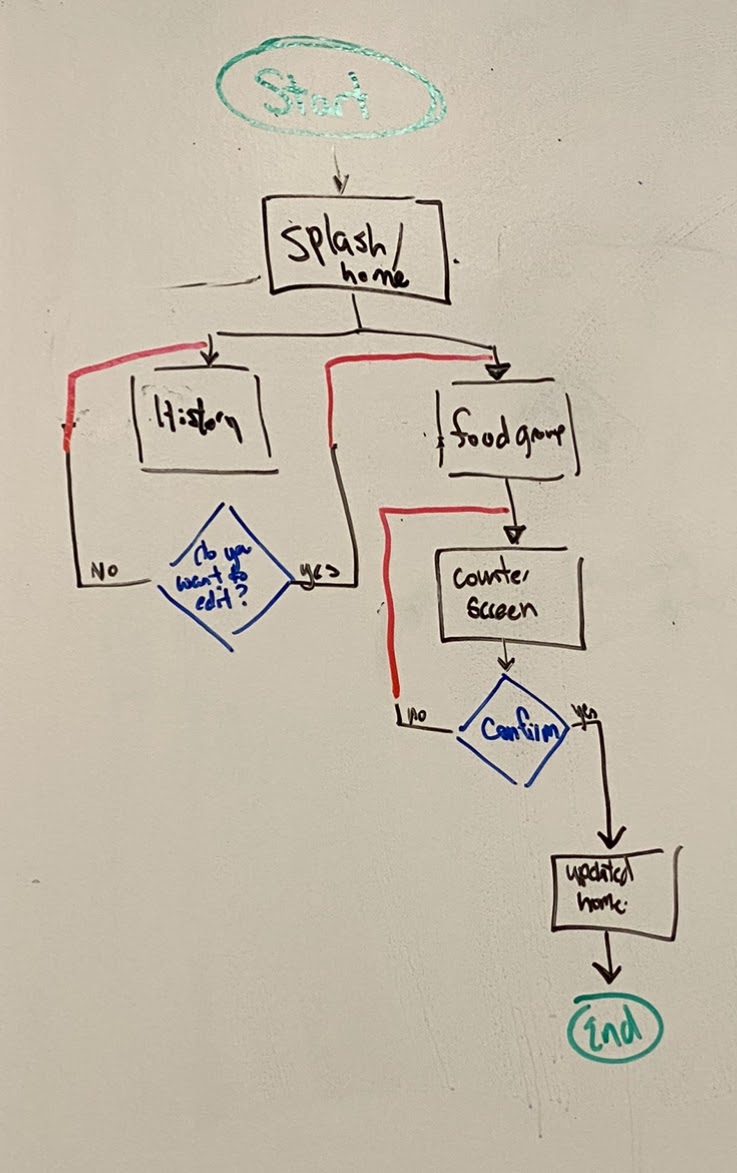 Start
Splash/
home
History
food group
Do you
want to
edit?
No
yes
Counter
Screen
Confirm
no
yes
updated
home
End